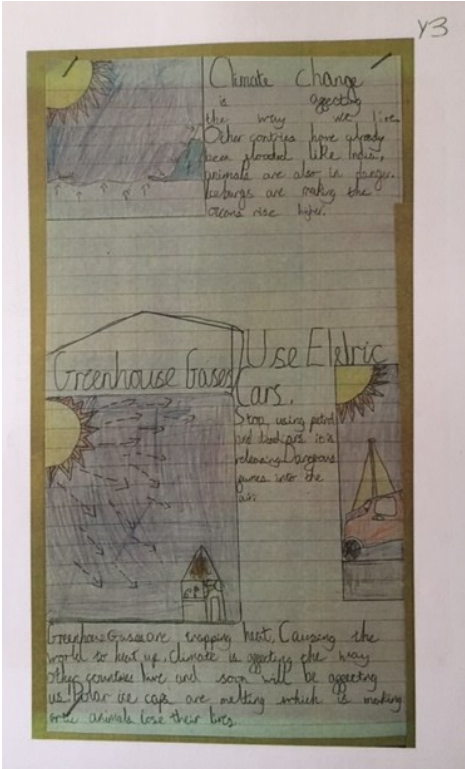 Y3
Climate change
is affecting
the way we live
Other contries have already
been flooded like India,
animals are also in danger.
Iceburgs are making the
oceans rise higher.
Greenhouse Gases
Use Eletric
Cars.
Stop using petrol
and cars it is
releasing Dangerous
fumes into the
air.
Greenhouse Gases are trapping heat, Causing the
world to heat up. Climate is affecting the way
other countries live and soon will be affecting
us. Polar ice caps are melting which is making
animals lose their lives.